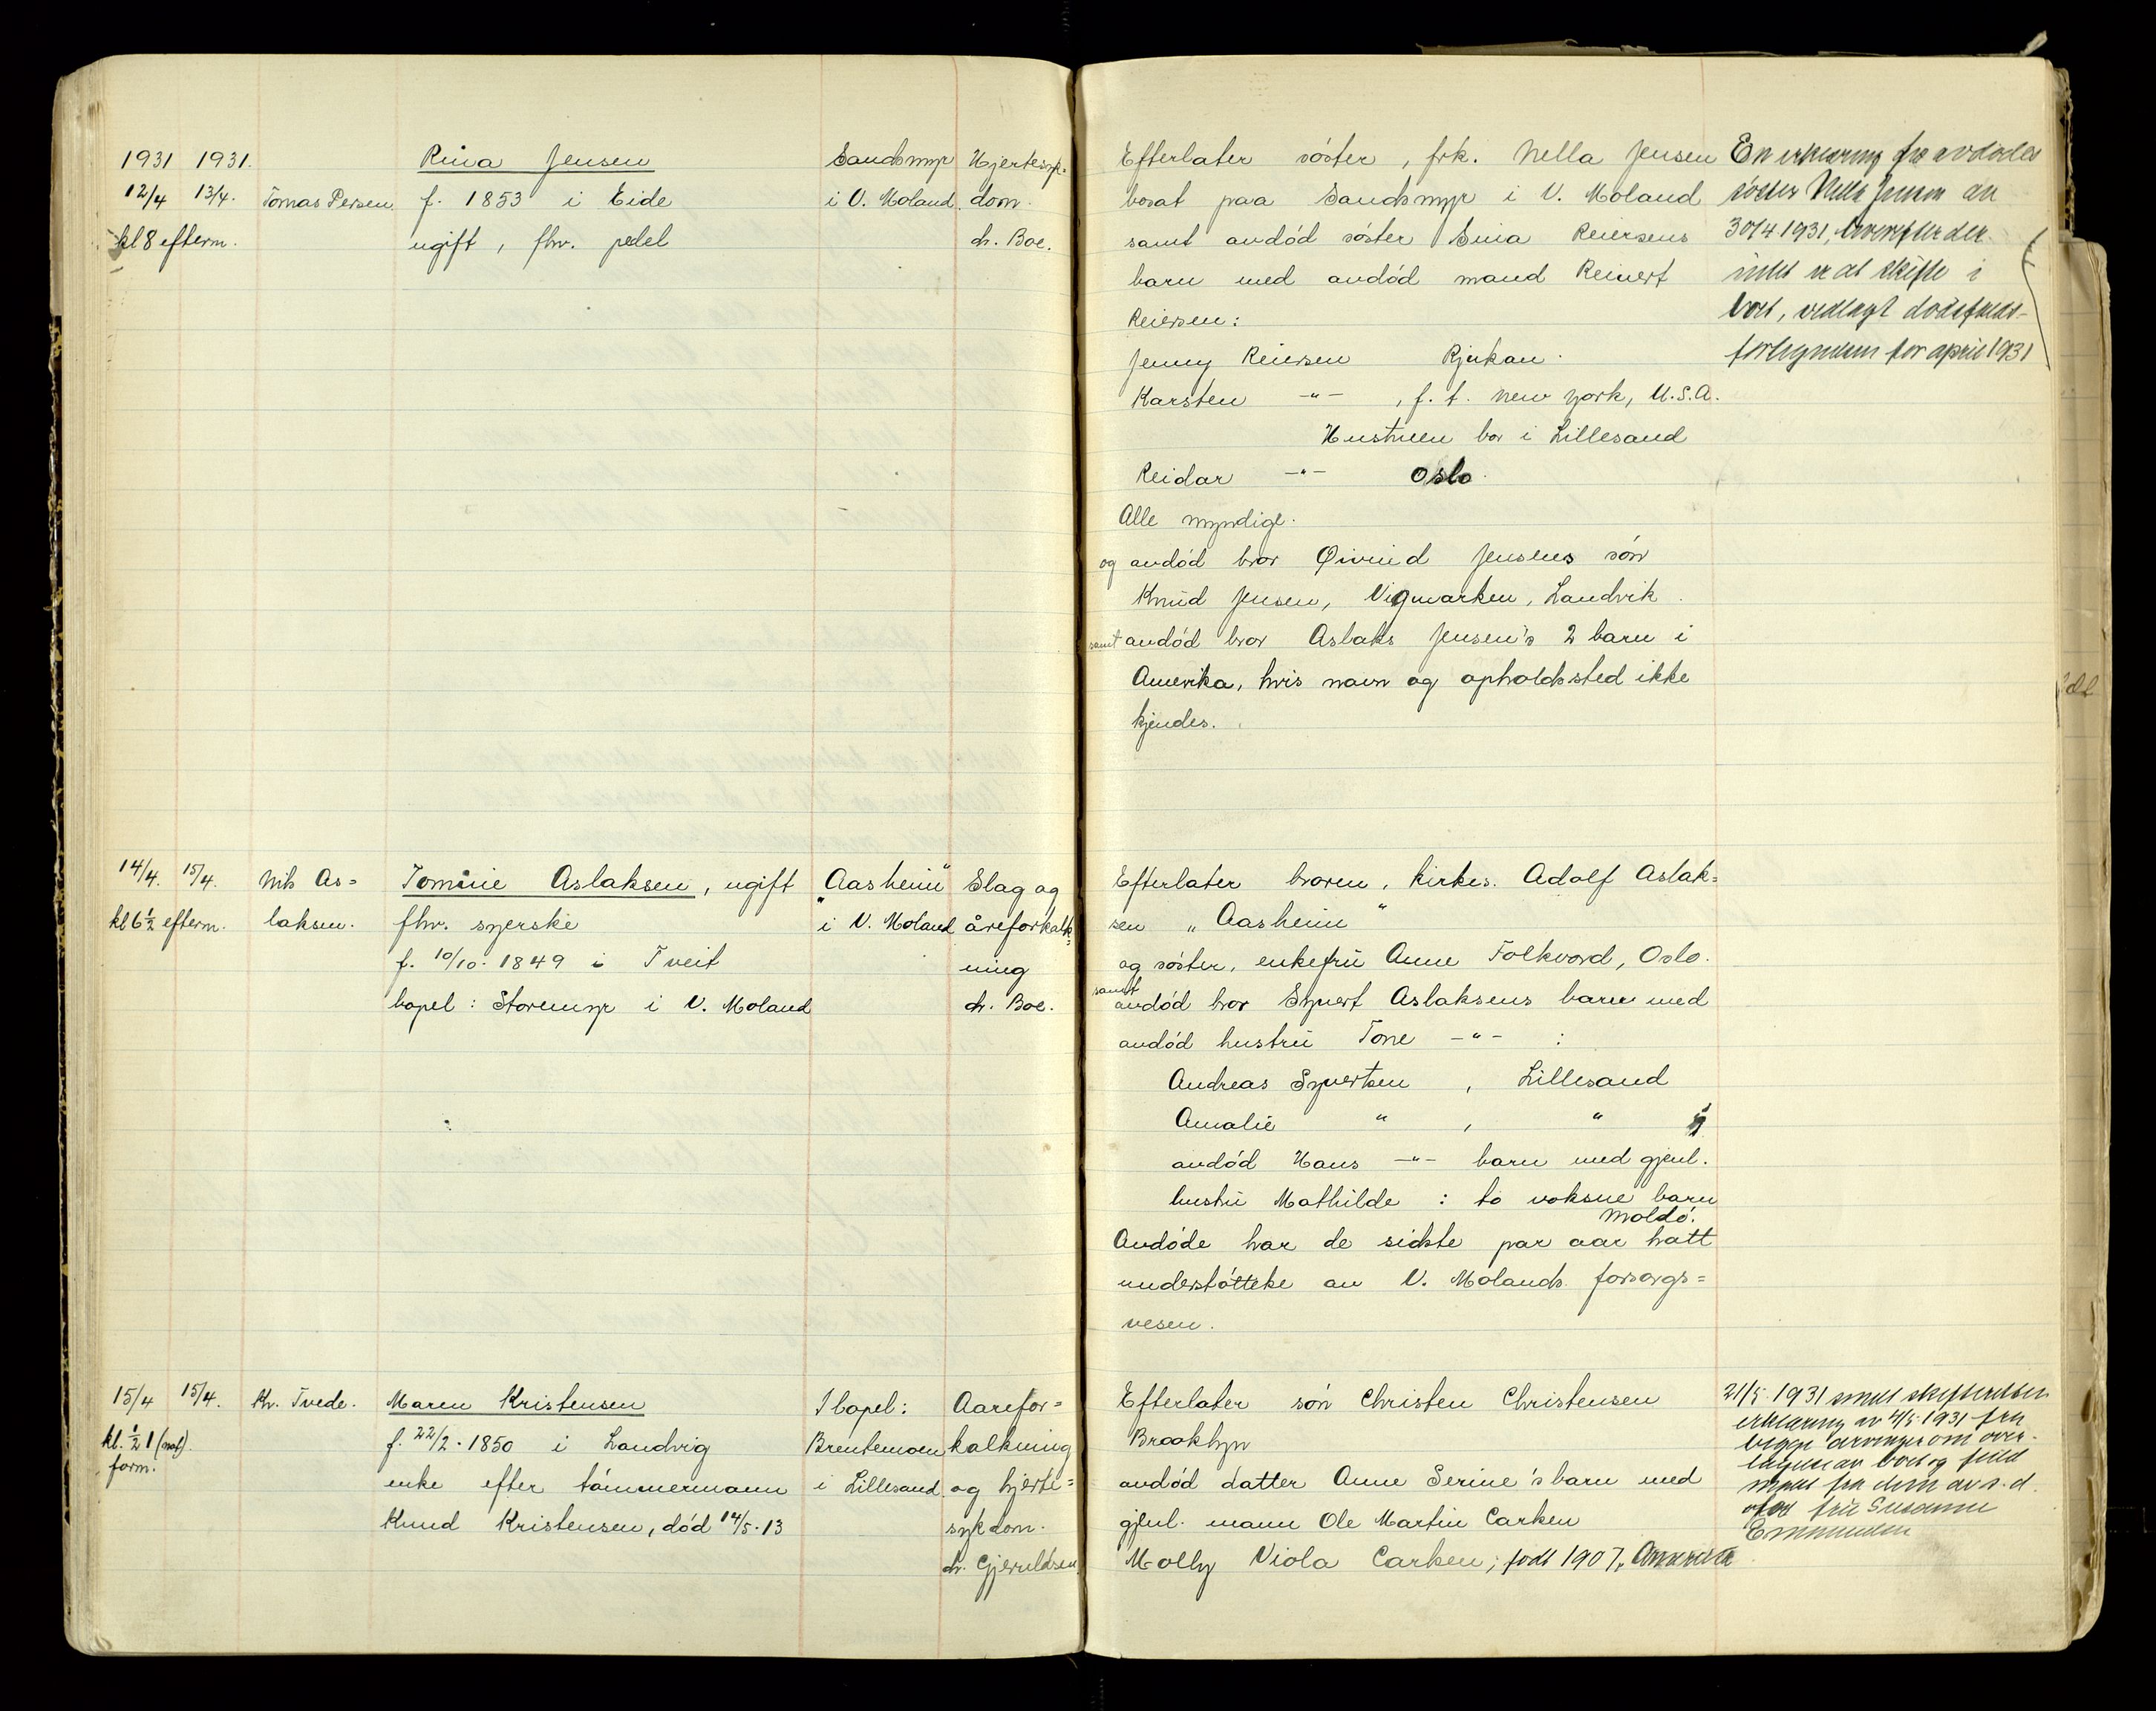 1931 1931.
12/4 13/4. Tomas Persen.
kl 8 efterm.
Rina Jensen
f. 1853 i Eide
ugift, fhv. pedel
Sandsmyr
i V. Moland.
Hjertesyk-
dom.
dr. Boe.
Efterlater söster, frk. Nella Jensen
bosat paa Sandsmyr i V. Moland
samt avdöd söster Sina Reiersens
barn med avdöd mand Reinert
Reiersen:
Jenny Reiersen Rjukan.
Karsten -"- , f. t. New York, U.S.A.
Hustruen bor i Lillesand
Reidar -"- Oslo.
Alle myndige.
og avdöd bror Øivind Jensens sön
Knud Jensen, Vigmarken, Landvik.
samt avdöd bror Aslaks Jensen's 2 barn i
Amerika, hvis navn og opholdssted ikke
kjendes.
En erklæring fra avdødes
söster Nella Jensen av
30/4 1931, hvorefter der
intet er at skifte i
boet, vedlagt dödsfalds-
fortegnelsen for april 1931
14/4. 15/4. Nils As=
kl 6 1/2 efterm. laksen.
Tomine Aslaksen, ugift
fhv. syerske
f. 10/10. 1849 i Tveit
bopel: Storemyr i V. Moland
"Aasheim"
i V. Moland
Slag og
åreforkalk=
ning
dr. Boe.
Efterlater broren, kirkes. Adolf Aslak=
sen "Aasheim"
og söster, enkefru Anne Folkvord, Oslo.
samt
avdöd bror Syvert Aslaksens barn med
avdöd hustru Tone -"- :
Andreas Syvertsen , Lillesand
Amalie " , "
avdöd Hans -"- barn med gjenl.
hustru Mathilde : to voksne barn
Moldö.
Avdöde har de sidste par aar hatt
understöttelse av V. Molands forsorgs=
vesen.
15/4 15/4. Kr. Tvede.
kl. 1/2 1 (nat).
form.
Maren Kristensen
f. 22/2. 1850 i Landvig
enke efter tömmermann
Knud Kristensen, död 14/5. 13
I bopel:
Brentemoen
i Lillesand.
Aarefor=
kalkning
og hjerte=
sykdom.
dr. Gjeruldsen.
Efterlater sön Christen Christensen
Brooklyn
avdöd datter Anne Serine's barn med
gjenl. mann Ole Martin Carken
Molly Viola Carken, født 1907, Amerika
21/5 1931 skifteretten
erklæring 1931 fra
begge arvinger om over-
tagelse av boet og
fra dem av s.d.
fru Susanne